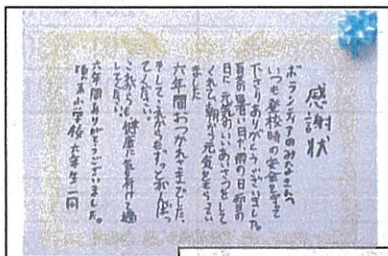 感謝状
ボランティアのみなさんへ
いつも登校時の安全を守って
下さりありがとうございました。
夏の暑い日や、雨の日、雪の
日に元気のいいあいさつをして
くれ、朝から元気をもらってい
ました。
六年間おつかれさまでした。
そして、これからもずっとがんば
ってください。
これからも健康に気を付けて過
してください。
六年間ありがとうございました。
小学校 六年生一同